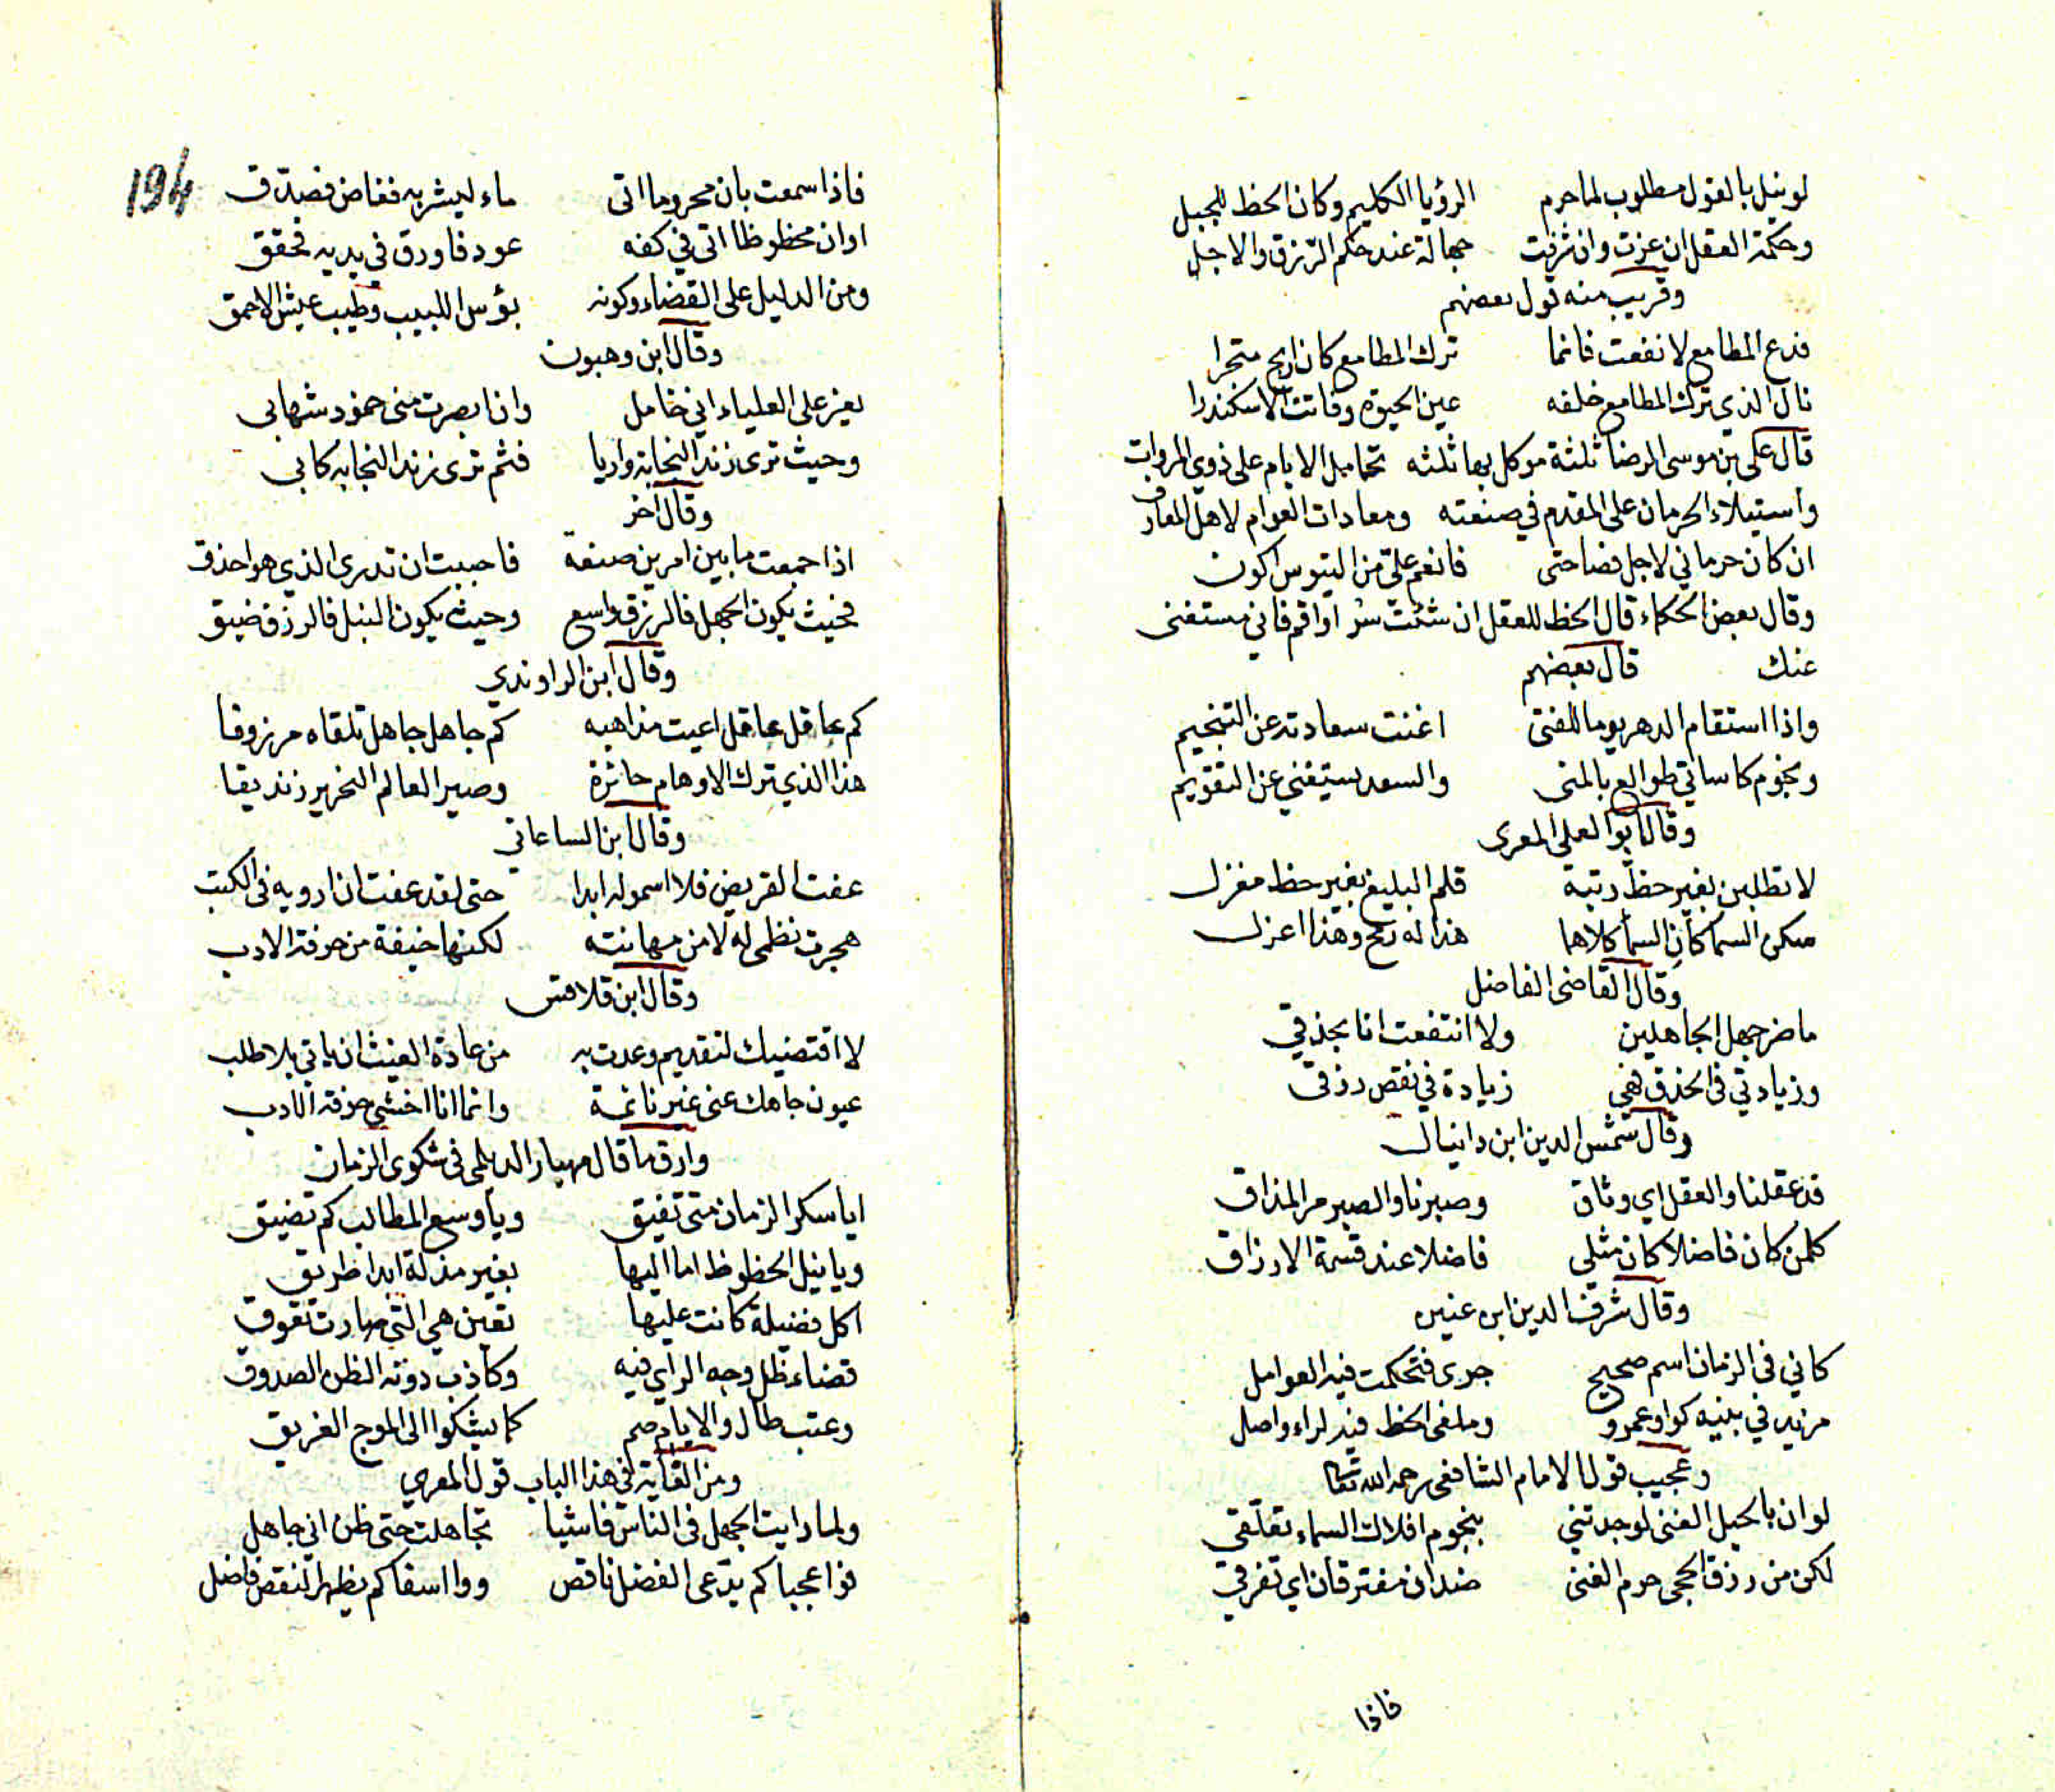 لو ينل بالقول مطلوب لما حرم الرؤيا الكليم وكان الحظ للجبل
وحكمة العقل ان عزت وان شرفت جهالة عند حكم الرزق والاجل
وقريب منه قول بعضهم
فدع المطامع لا نفعت فانما ترك المطامع كان اربح متجرا
نال الذي ترك المطامع خلفه عين الحيوة وفاتت الاسكندرا
قال على بن موسى الرضا ثلثة موكل بها ثلثه تحامل الايام على ذوي المروات
واستيلاء الحرمان على المقدم في صنعته ومعادات العوام لاهل المعارف
ان كان حرماني لاجل فصاحتى فانعم علىّ من التيوس اكون
وقال بعض الحكماء قال الحظ للعقل ان شئت سر او اقم فاني مستغنى
عنك قال بعضهم
واذا استقام الدهر يوما للفتى اغنت سعادته عن التنجيم
ونجوم كاساتي طوالع بالمنى والسعد يستغني عن التقويم
وقال ابو العلى المعرى
لا تطلبن بغير حظ رتبة قلم البليغ بغير حظ مغزل
سكن السماكان السما كلاهما هذا له رمح وهذا اعزل
وقال القاضى الفاضل
ما ضر جهل الجاهلين ولا انتفعت انا بحذقي
وزيادتي فى الحذق فهي زيادة في نقص رزقى
وقال شمس الدين ابن دانيال
قد عقلنا والعقل اي وثاق وصبرنا والصبر مر المذاق
كلمن كان فاضلا كان مثلى فاضلا عند قسمة الارزاق
وقال شرف الدين ابن عنين
كاني فى الزمان اسم صحيح جرى فتحكمت فيه العوامل
مزيد في بنيه كواو عمرو وملغى الحظ فيه كراء واصل
وعجيب قول الامام الشافعى رحمه الله تعالى
لو ان بالحيل الغنى لوجدتني بنجوم افلاك السماء تعلّقى
لكن من رزق الحجى حرم الغنى ضدان مفترقان اي تفرق
فاذا
194
فاذا سمعت بان محروما اتى ماء ليشربه فغاض فصدّق
او ان محظوظا اتى في كفه عود فاورق في يديه فحقق
ومن الدليل على القضاء وكونه بؤس اللبيب وطيب عيش الاحمق
وقال ابن وهبون
يعز على العلياء اني خامل وان ابصرت منى خمود شهابى
وحيث ترى زند النجابة واريا فثم ترى زند النجابه كابى
وقال اخر
اذا جمعت ما بين امرين صنعة فاحببت ان تدرى الذي هو احذق
فحيث يكون الجهل فالرزق واسع وحيث يكون النبل فالرزق ضيق
وقال ابن الراوندي
كم عاقل عاقل اعيت مذاهبه كم جاهل جاهل تلقاه مرزوقا
هذا الذي ترك الاوهام حائرة وصير العالم النحرير زنديقا
وقال ابن الساعاتي
عفت القريض فلا اسمو له ابدا حتى لقد عفت ان ارويه فى الكتب
هجرت نظمى له لا من مهانته لكنها خيفة من حرفة الادب
وقال ابن قلاقس
لا اقتضيك لتقديم وعدت به من عادة الغيث ان ياتي بلا طلب
عيون جاهك عنى غير نائمة وانما انا اخشى حرفة الادب
وارق ما قال مهيار الديلمى فى شكوى الزمان
ايا سكر الزمان متى تفيق ويا وسع المطالب كم تضيق
ويا نيل الحظوظ اما اليها بغير مذلة ابدا طريق
اكل فضيلة كانت عليها تعين هي التي صارت تعوق
قضاء ظل وجه الراي فيه وكاذب دونه الظن الصدوق
وعتب طال والايام صم كما يشكوا الى الموج الغريق
ومن الغاية في هذا الباب قول المعري
ولما رايت الجهل فى الناس فاشيا تجاهلت حتى ظن انى جاهل
فوا عجبا كم يدّعى الفضل ناقص ووا اسفا كم يظهر النقص فاضل